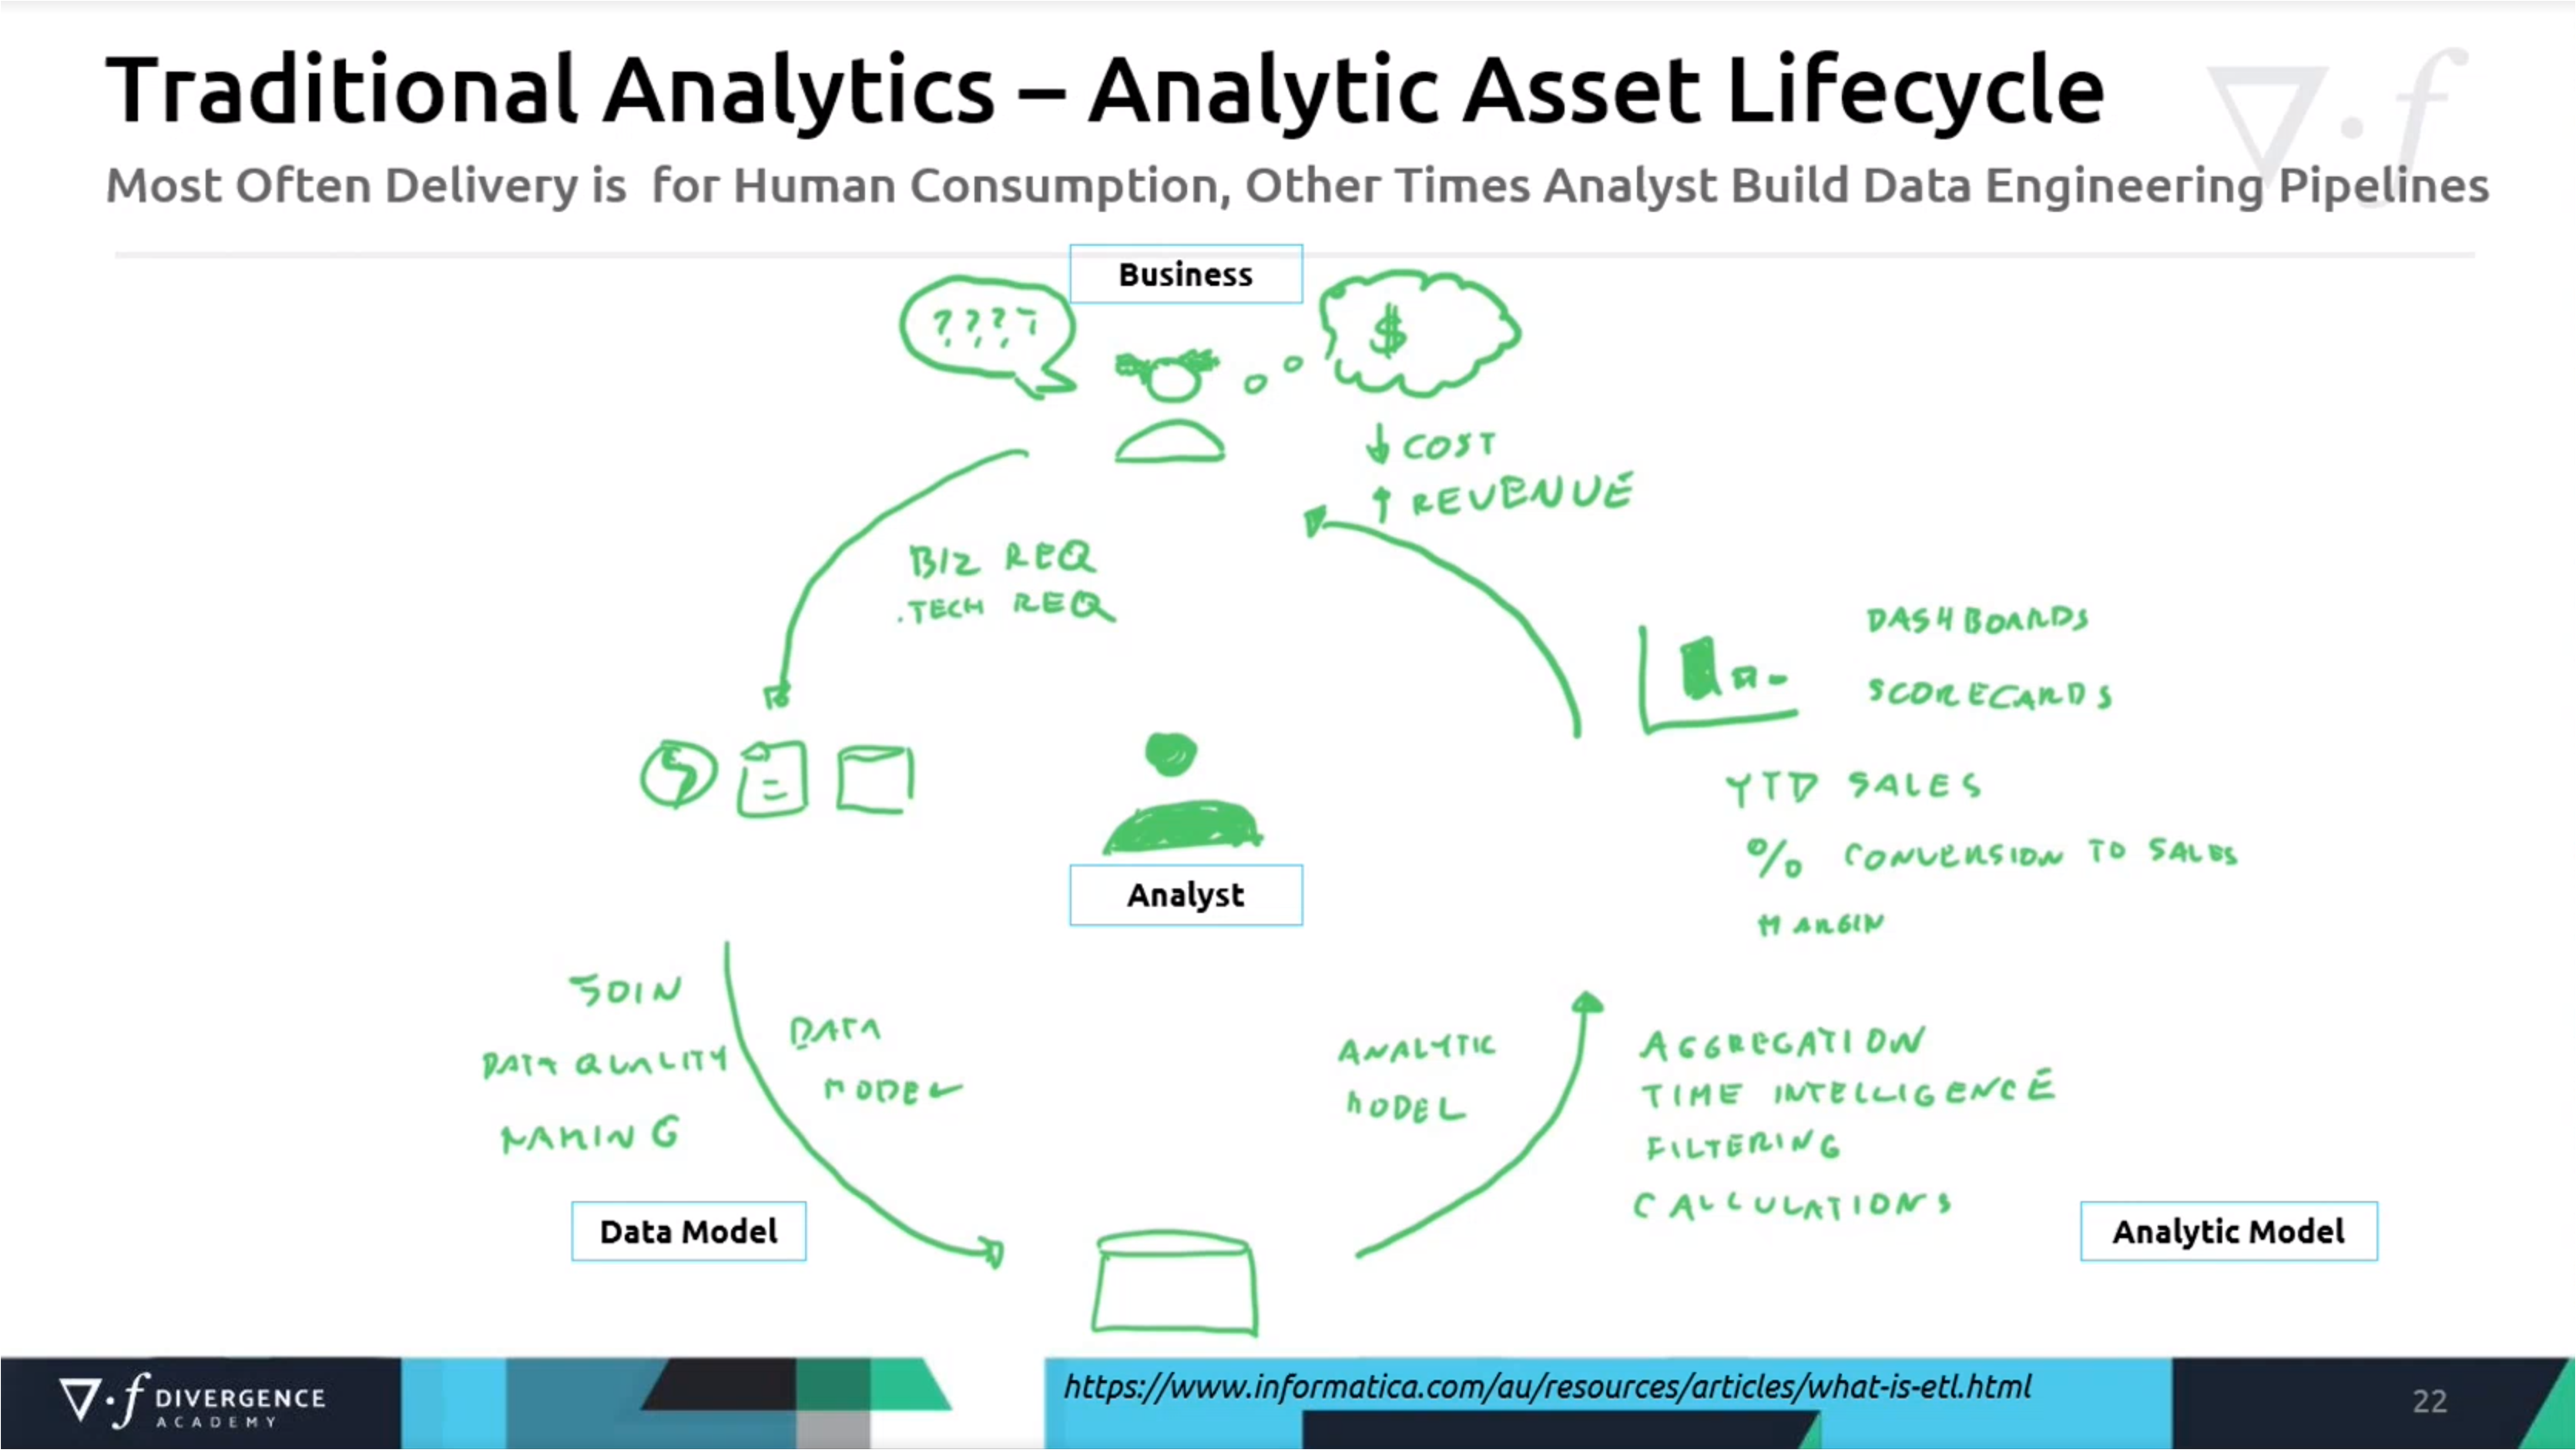 Traditional Analytics – Analytic Asset Lifecycle
Most Often Delivery is for Human Consumption, Other Times Analyst Build Data Engineering Pipelines
Business
????
$
↓ COST
↑ REVENUE
BIZ REQ
.TECH REQ
DASHBOARDS
SCORECARDS
YTD SALES
% CONVERSION TO SALES
MARGIN
Analyst
JOIN
DATA QUALITY
NAMING
DATA
MODEL
ANALYTIC
MODEL
AGGREGATION
TIME INTELLIGENCE
FILTERING
CALCULATIONS
Data Model
Analytic Model
∇·f DIVERGENCE
ACADEMY
https://www.informatica.com/au/resources/articles/what-is-etl.html
22